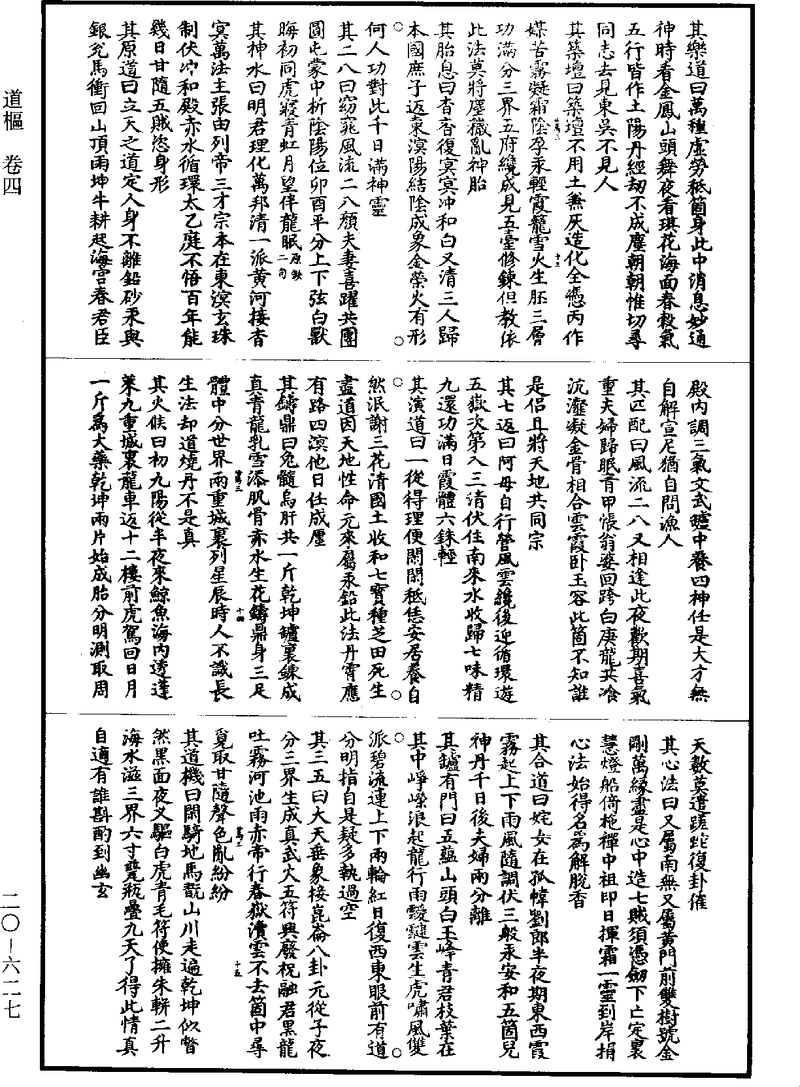 道樞 卷四
其樂道曰萬種虛勞秪箇身此中消息妙通
神時看金鳳山頭舞夜看琪花海面春穀氣
五行皆作土陽丹經刼不成塵朝朝惟切尋
同志去見東吳不見人
其築壇曰築壇不用土無灰造化全憑丙作
媒苦霧凝霜陰孕汞輕霞籠雪火生胚三層
功滿分三界五府纔成見五臺修鍊但教依
此法莫將塵穢亂神胎
其胎息曰杳杳復冥冥冲和白又清三人歸
本國庶子返東溟陽結陰成象金榮火有形
何人功對此千日滿神靈
其二八曰窈窕風流二八顏夫妻喜躍共團
圓屯蒙中析陰陽位卯酉平分上下弦白獸
晦初同虎寢青虹月望伴龍眠原缺二句
其神水曰明君理化萬邦清一派黃河接杳
冥萬法主張由列帝三才宗本在東溟玄珠
制伏冲和殿赤水循環太乙庭不悟百年能
幾日甘隨五賊恣身形
其原道曰立天之道定人身不離鉛砂汞與
銀兊馬衝回山頂雨坤牛耕起海宮春君臣
殿内調三氣文武爐中養四神任是大才無
自解宣尼猶自問漁人
其匹配曰風流二八又相逢此夜歡期喜氣
重夫婦歸眠青甲帳翁婆回跨白庚龍共飡
沆瀣凝金骨相合雲霞卧玉容此箇不知誰
是侣且將天地共同宗
其七返曰阿母自行營風雲纔後迎循環遊
五嶽次第入三清伏住南來水收歸七味精
九還功滿日霞體六銖輕
其演道曰一從得理便閑閑秪恁安居養自
然泯謝三花清國土收和七寶種芝田死生
盡道因天地性命元來屬汞鉛此法丹霄應
有路四溟他日任成塵
其鑄鼎曰兔髓烏肝共一斤乾坤爐裏鍊成
真青龍乳雪添肌骨赤水生花鑄鼎身三足
體中分世界兩重城裏列星辰時人不識長
生法却道燒丹不是真
其火候曰初九陽從半夜來鯨魚海内透蓬
萊九重城裏龍車返十二樓前虎駕回日月
一斤爲大藥乾坤兩片始成胎分明測取周
天數莫遣蹉跎復卦催
其心法曰又屬南無又屬黃門前雙樹號金
剛萬緣盡是心中造七賊須憑劒下亡定裏
慧燈船倚柂禪中祖印日揮霜一靈到岸捐
心法始得名爲解脫香
其合道曰姹女在孤幃劉郎半夜期東西霞
霧起上下雨風隨調伏三般汞安和五箇兒
神丹千日後夫婦兩分離
其鑪有門曰五蘊山頭白玉峰青君枝葉在
其中崢嶸浪起龍行雨靉靆雲生虎嘯風雙
派碧流連上下兩輪紅日復西東眼前有道
分明指自是疑多執過空
其三五曰大天垂象接崑崙八卦元從子夜
分三界生成真武火五符興廢祝融君黑龍
吐霧河池雨赤帝行春嶽瀆雲不去箇中尋
覓取甘隨聲色亂紛紛
其道機曰閑騎地馬翫山川走遍乾坤似瞥
然黑面夜叉驅白虎青毛符使擁朱軿二升
海水滋三界六寸甆瓶疊九天了得此情真
自適有誰斟酌到幽玄
二〇—六二七